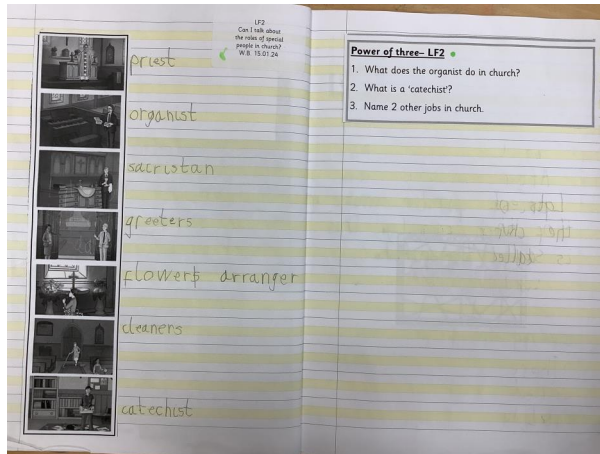 LF2
Can I talk about
the roles of special
people in church?
W.B. 15.01.24
priest
organist
sacristan
greeters
flowers arranger
cleaners
catechist
Power of three– LF2
1. What does the organist do in church?
2. What is a 'catechist'?
3. Name 2 other jobs in church.